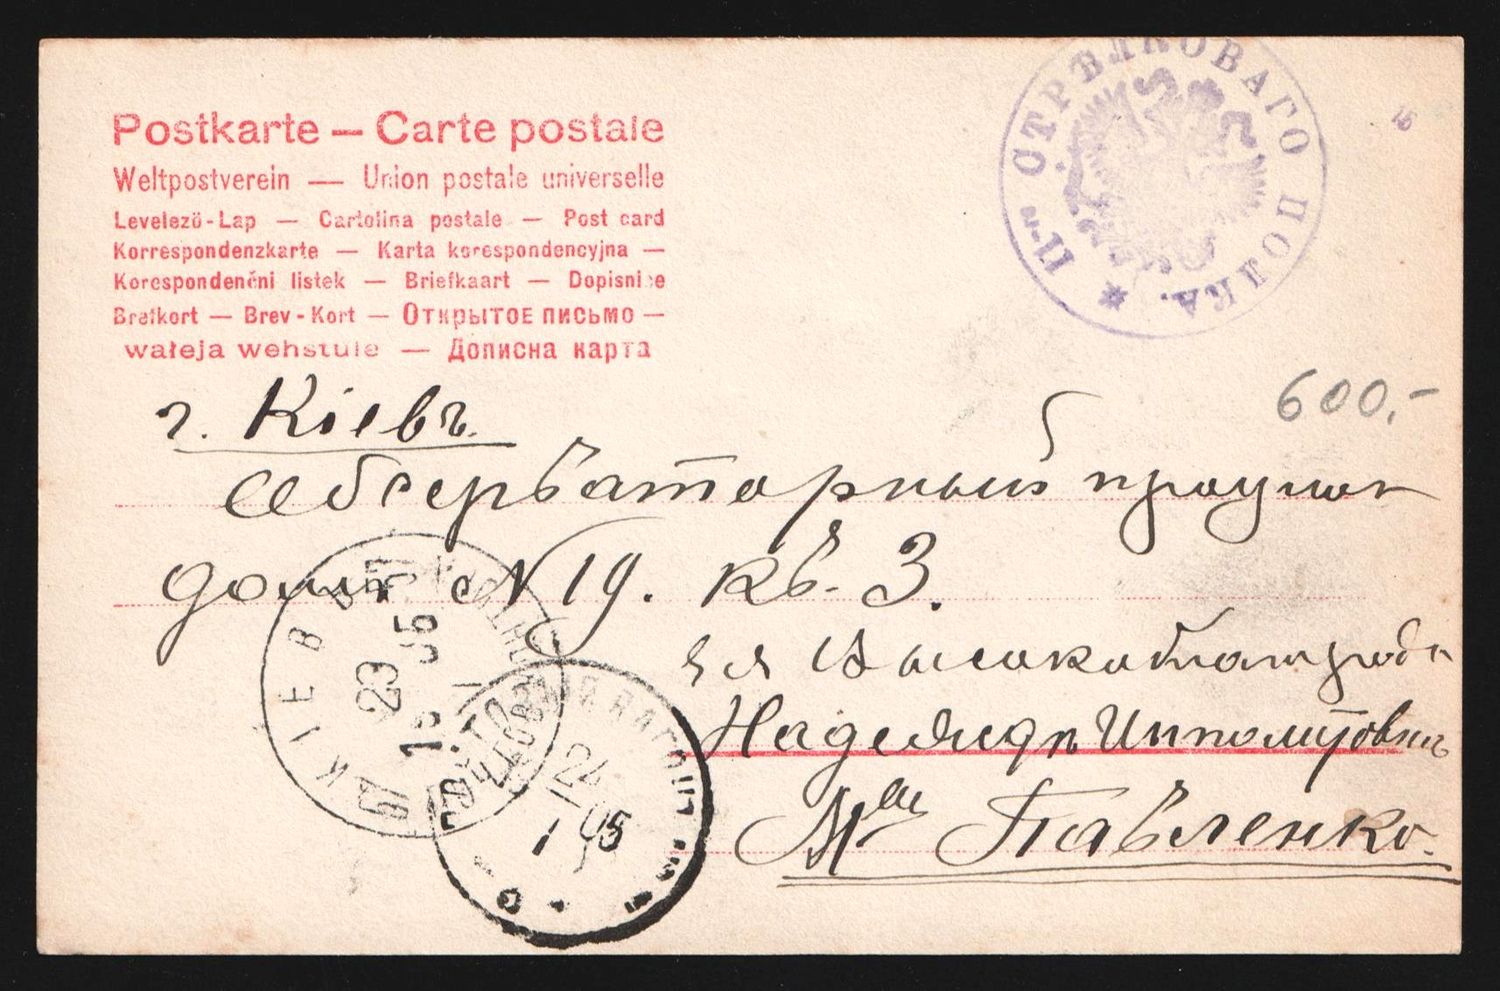 Postkarte — Carte postale
Weltpostverein — Union postale universelle
Levelező-Lap — Cartolina postale — Post card
Korrespondenzkarte — Karta korespondencyjna —
Korespondenčni listek — Briefkaart — Dopisnice
Brefkort — Brev-Kort — Открытое письмо —
wałeja wehstule — Дописна карта
* 11го СТРѢЛКОВАГО ПОЛКА.
16
600,-
г. Кіевъ.
Обсерваторный
домъ № 19. кв. 3.
Ея Высокоблагрод
Надежда Ипполитовнѣ
Мме Павленко.
КІЕВ
23
1
24
1 05